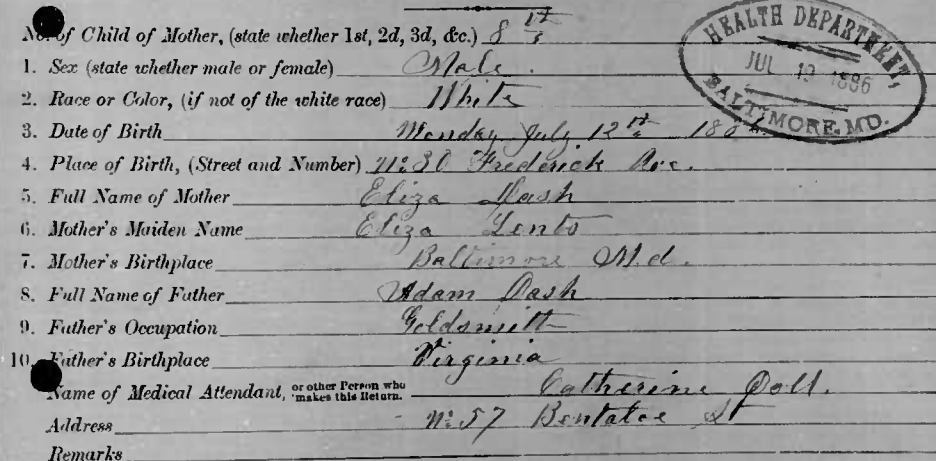 No. of Child of Mother, (state whether 1st, 2d, 3d, &c.) 8th
1. Sex (state whether male or female) Male.
2. Race or Color, (if not of the white race) White
3. Date of Birth Monday July 12th
4. Place of Birth, (Street and Number) No 30 Frederick Ave.
5. Full Name of Mother Eliza Dash
6. Mother's Maiden Name Eliza
7. Mother's Birthplace Baltimore Md.
8. Full Name of Father Adam Dash
9. Father's Occupation Goldsmith
10. Father's Birthplace Virginia
Name of Medical Attendant, or other Person who makes this Return. Catherine Doll.
Address No 57 St
Remarks
HEALTH DEPARTMENT,
JUL 19 1886
BALTIMORE, MD.